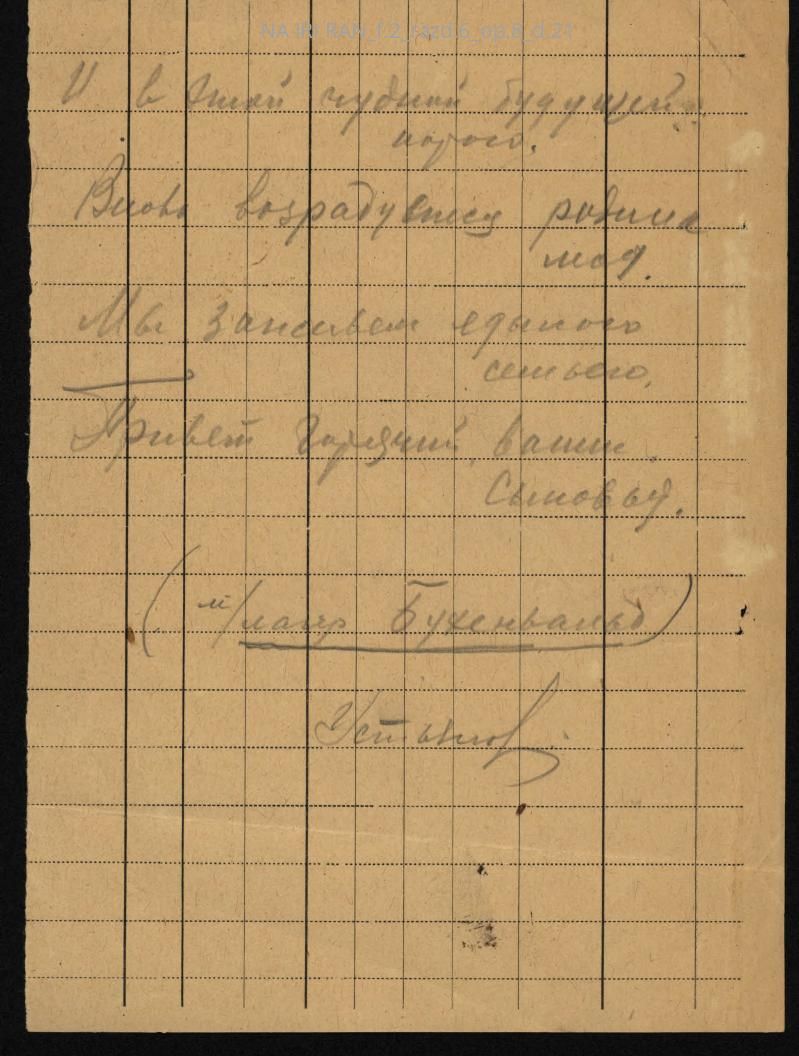 NA IRI RAN_f.2_razd.6_op.8_d.21
И в этой чудной будущей
порою.
Вновь возрадуется родина
моя.
Мы заживем единою
семьею.
Привет горячий, ваши
Сыновья.
( лагер Бухенвальд)
Устинов